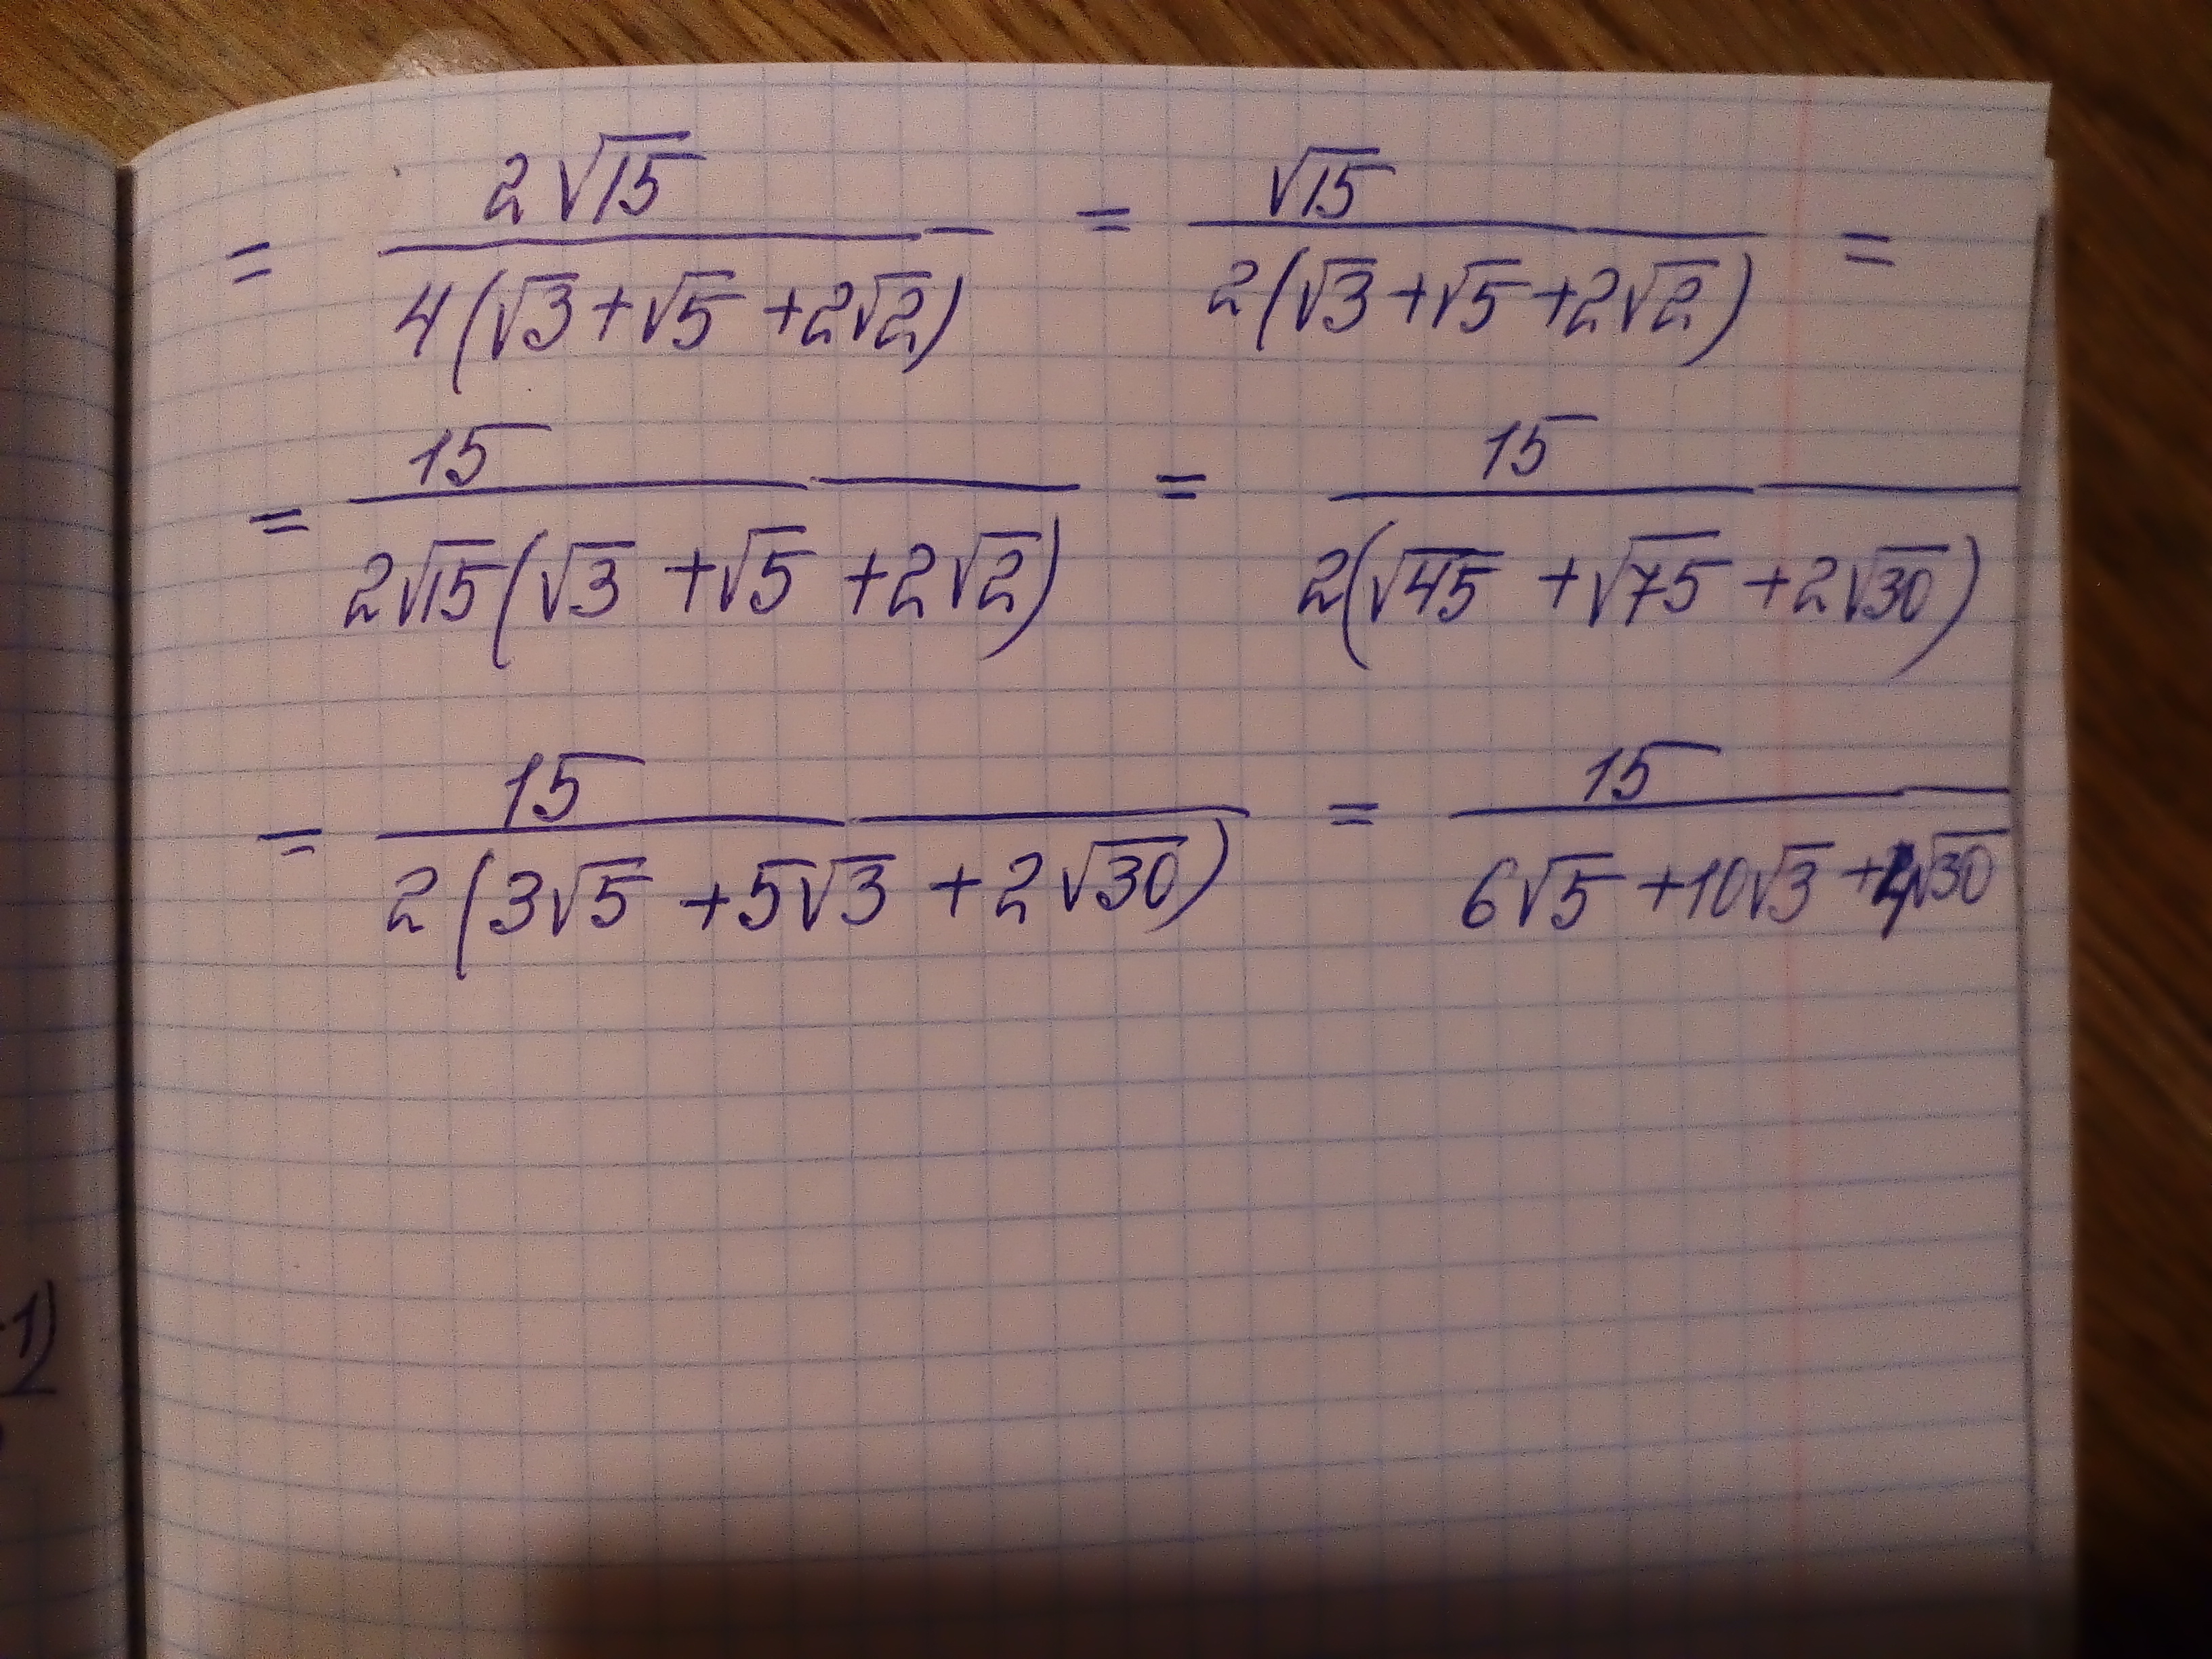 = 2√15 / 4(√3 + √5 + 2√2) = √15 / 2(√3 + √5 + 2√2) =
= 15 / 2√15(√3 + √5 + 2√2) = 15 / 2(√45 + √75 + 2√30)
= 15 / 2(3√5 + 5√3 + 2√30) = 15 / 6√5 + 10√3 + 4√30
1)